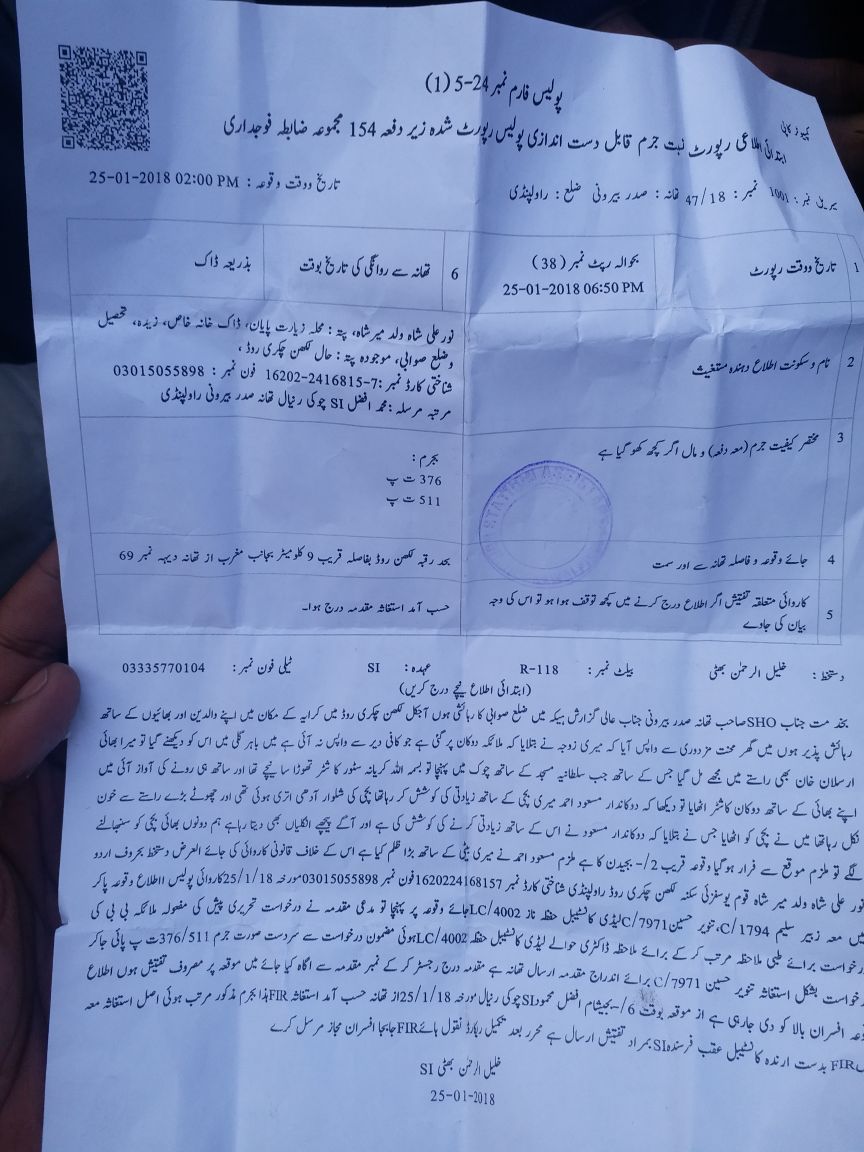 پولیس فارم نمبر 24-5 (1)
کمپیوٹر کاپی
ابتدائی اطلاعی رپورٹ نسبت جرم قابل دست اندازی پولیس رپورٹ شدہ زیر دفعہ 154 مجموعہ ضابطہ فوجداری
سیریل نمبر: 1001 نمبر: 47/18 تھانہ: صدر بیرونی ضلع: راولپنڈی
تاریخ ووقت وقوعہ: 25-01-2018 02:00 PM
1 تاریخ ووقت رپورٹ
بحوالہ رپٹ نمبر (38)
25-01-2018 06:50 PM
6 تھانہ سے روانگی کی تاریخ بوقت
بذریعہ ڈاک
2 نام و سکونت اطلاع دہندہ مستغیث
نور علی شاہ ولد میر شاہ، پتہ: محلہ زیارت پایان، ڈاک خانہ خاص، زیدہ، تحصیل
وضلع صوابی، موجودہ پتہ: حال لکھن چکری روڈ،
شناختی کارڈ نمبر: 16202-2416815-7 فون نمبر: 03015055898
مرتبہ مرسلہ: محمد افضل SI چوکی رنیال تھانہ صدر بیرونی راولپنڈی
3 مختصر کیفیت جرم (معہ دفعہ) و مال اگر کچھ کھو گیا ہے
بجرم:
376 ت پ
511 ت پ
4 جائے وقوعہ و فاصلہ تھانہ سے اور سمت
بحد رقبہ لکھن روڈ بفاصلہ قریب 9 کلومیٹر بجانب مغرب از تھانہ دیہہ نمبر 69
5 کاروائی متعلقہ تفتیش اگر اطلاع درج کرنے میں کچھ توقف ہوا ہو تو اس کی وجہ
بیان کی جاوے
حسب آمد استغاثہ مقدمہ درج ہوا۔
دستخط: خلیل الرحمٰن بھٹی بیلٹ نمبر: R-118 عہدہ: SI ٹیلی فون نمبر: 03335770104
(ابتدائی اطلاع نیچے درج کریں)
بخد مت جناب SHO صاحب تھانہ صدر بیرونی جناب عالی گزارش ہیکہ میں ضلع صوابی کا رہائشی ہوں آجکل لکھن چکری روڈ میں کرایہ کے مکان میں اپنے والدین اور بھائیوں کے ساتھ
رہائش پذیر ہوں میں گھر محنت مزدوری سے واپس آیا کہ میری زوجہ نے بتلایا کہ ملائکہ دوکان پر گئی ہے جو کافی دیر سے واپس نہ آئی ہے میں باہر گلی میں اس کو دیکھنے گیا تو میرا بھائی
ارسلان خان بھی راستے میں مجھے مل گیا جس کے ساتھ جب سلطانیہ مسجد کے ساتھ چوک میں پہنچا تو بسمہ اللہ کریانہ سٹور کا شٹر تھوڑا سا نیچے تھا اور ساتھ ہی رونے کی آواز آئی میں
اپنے بھائی کے ساتھ دوکان کا شٹر اٹھایا تو دیکھا کہ دوکاندار مسعود احمد میری بچی کے ساتھ زیادتی کی کوشش کر رہا تھا بچی کی شلوار آدھی اتری ہوئی تھی اور چھوٹے بڑے راستے سے خون
نکل رہا تھا میں نے بچی کو اٹھایا جس نے بتلایا کہ دوکاندار مسعود نے اس کے ساتھ زیادتی کرنے کی کوشش کی ہے اور آگے پیچھے انگلیاں بھی دیتا رہا ہے ہم دونوں بھائی بچی کو سنبھالنے
لگے تو ملزم موقع سے فرار ہو گیا وقوعہ قریب 2/- بجیدن کا ہے ملزم مسعود احمد نے میری بیٹی کے ساتھ بڑا ظلم کیا ہے اس کے خلاف قانونی کاروائی کی جائے العرض دستخط بحروف اردو
نور علی شاہ ولد میر شاہ قوم یوسفزئی سکنہ لکھن چکری روڈ راولپنڈی شناختی کارڈ نمبر 1620224168157 فون نمبر 03015055898 مورخہ 25/1/18 کاروائی پولیس اطلاع وقوعہ پاکر
میں معہ زبیر سلیم C/1794، تنویر حسین C/7971 لیڈی کانسٹیبل حفظہ ناز LC/4002 جائے وقوعہ پر پہنچا تو مدعی مقدمہ نے درخواست تحریری پیش کی مفصولہ ملائکہ بی بی کی
درخواست برائے طبی ملاحظہ مرتب کر کے برائے ملاحظہ ڈاکٹری حوالے لیڈی کانسٹیبل حفظہ LC/4002 ہوئی مضمون درخواست سے سردست صورت جرم 376/511 ت پ پائی جاکر
درخواست بشکل استغاثہ تنویر حسین C/7971 برائے اندراج مقدمہ ارسال تھانہ ہے مقدمہ درج رجسٹر کر کے نمبر مقدمہ سے آگاہ کیا جائے میں موقعہ پر مصروف تفتیش ہوں اطلاع
وعہ افسران بالا کو دی جارہی ہے از موقعہ بوقت 6/- بجیشام افضل محمود SI چوکی رنیال مورخہ 25/1/18 از تھانہ حسب آمد استغاثہ FIR ہذا بجرم مذکور مرتب ہوئی اصل استغاثہ معہ
FIR بدست ارندہ کانسٹیبل عقب فرستندہ SI بمراد تفتیش ارسال ہے محرر بعد تکمیل ریکارڈ نقول ہائے FIR جابجا افسران مجاز مرسل کرے
خلیل الرحمٰن بھٹی SI
25-01-2018